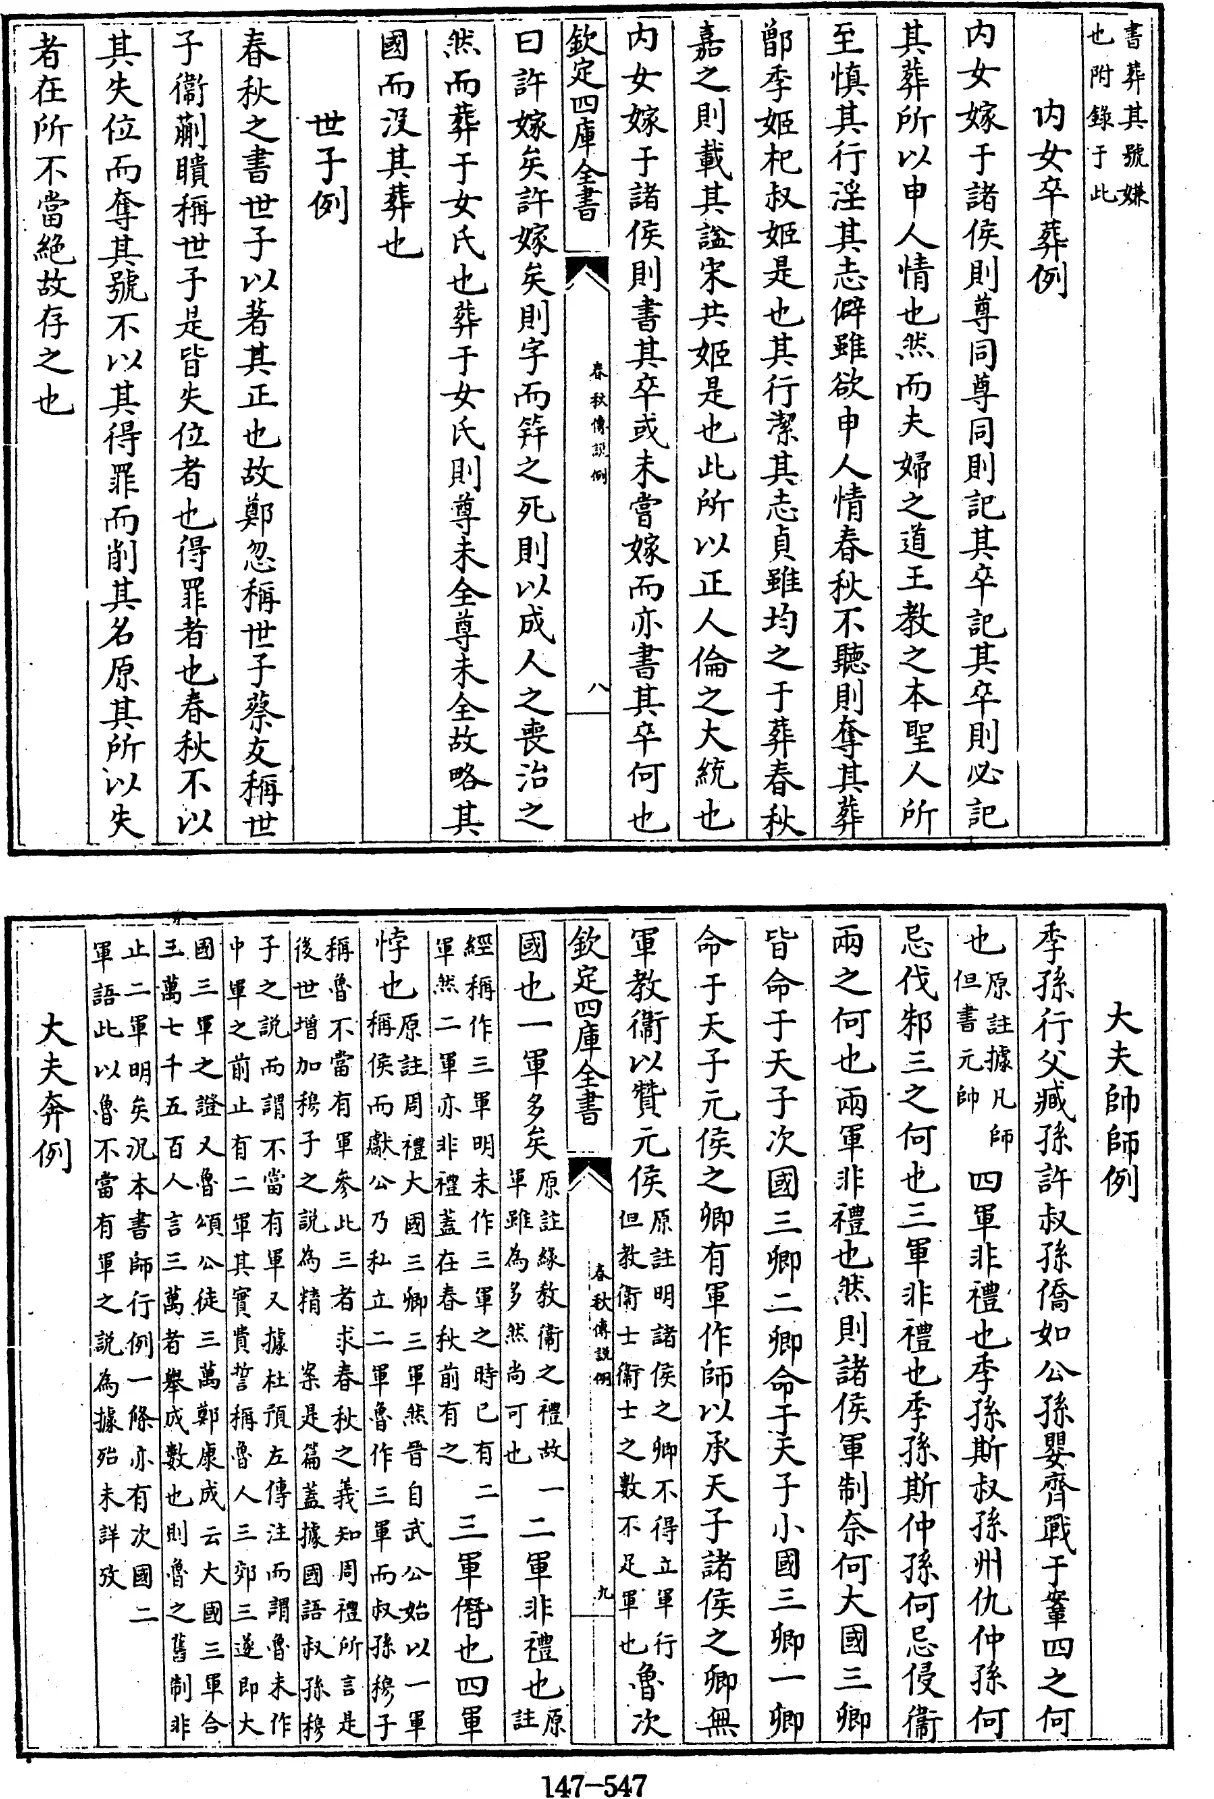 書葬其號嫌
也附錄于此
内女卒葬例
内女嫁于諸侯則尊同尊同則記其卒記其卒則必記
其葬所以申人情也然而夫婦之道王教之本聖人所
至慎其行淫其志僻雖欲申人情春秋不聽則奪其葬
鄫季姬杞叔姬是也其行潔其志貞雖均之于葬春秋
嘉之則載其諡宋共姬是也此所以正人倫之大統也
内女嫁于諸侯則書其卒或未嘗嫁而亦書其卒何也
欽定四庫全書
春秋傳説例
八
曰許嫁矣許嫁矣則字而笄之死則以成人之喪治之
然而葬于女氏也葬于女氏則尊未全尊未全故略其
國而没其葬也
世子例
春秋之書世子以著其正也故鄭忽稱世子蔡友稱世
子衞蒯聵稱世子是皆失位者也得罪者也春秋不以
其失位而奪其號不以其得罪而削其名原其所以失
者在所不當絶故存之也
大夫帥師例
季孫行父臧孫許叔孫僑如公孫嬰齊戰于鞌四之何
也
原註據凡師
但書元帥
四軍非禮也季孫斯叔孫州仇仲孫何
忌伐邾三之何也三軍非禮也季孫斯仲孫何忌侵衞
兩之何也兩軍非禮也然則諸侯軍制奈何大國三卿
皆命于天子次國三卿二卿命于天子小國三卿一卿
命于天子元侯之卿有軍作師以承天子諸侯之卿無
軍教衞以贊元侯
原註明諸侯之卿不得立軍行
但教衞士衞士之數不足軍也
魯次
欽定四庫全書
春秋傳説例
九
國也一軍多矣
原註緣教衞之禮故一
軍雖為多然尚可也
二軍非禮也
原
註
經稱作三軍明未作三軍之時已有二
軍然二軍亦非禮蓋在春秋前有之
三軍僭也四軍
悖也
原註周禮大國三卿三軍然晉自武公始以一軍
稱侯而獻公乃私立二軍魯作三軍而叔孫穆子
稱魯不當有軍參此三者求春秋之義知周禮所言是
後世增加穆子之説為精
案是篇蓋據國語叔孫穆
子之説而謂不當有軍又據杜預左傳注而謂魯未作
中軍之前止有二軍其實費誓稱魯人三郊三遂即大
國三軍之證又魯頌公徒三萬鄭康成云大國三軍合
三萬七千五百人言三萬者舉成數也則魯之舊制非
止二軍明矣况本書師行例一條亦有次國二
軍語此以魯不當有軍之説為據殆未詳攷
大夫奔例
147-547